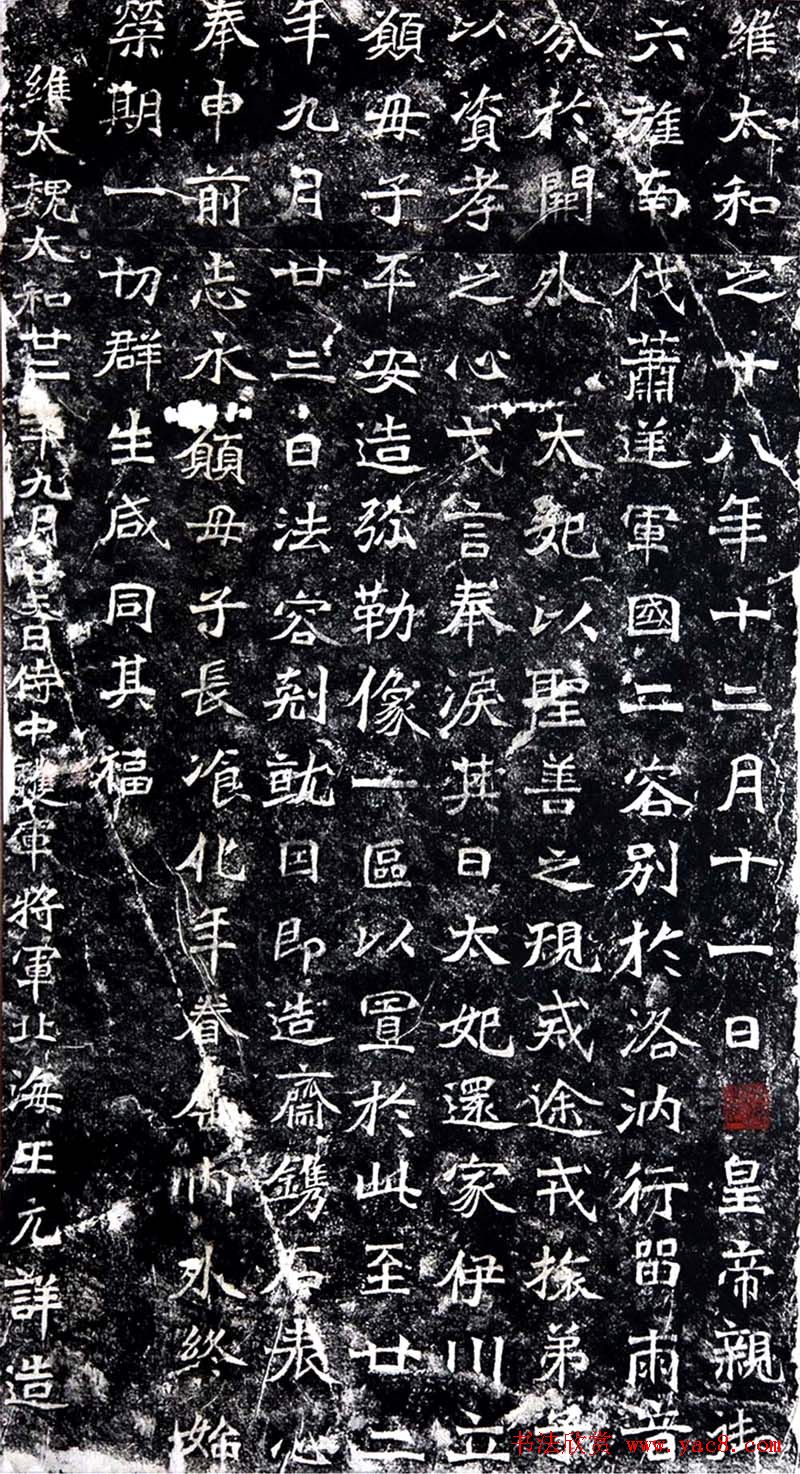 維太和之廿八年十二月十一日皇帝親扌
六旌南伐蕭逆軍國二容別於洛汭行留兩音
分於闗外太妃以聖善之規戒途戎振弟
以資孝之心戈言奉淚其日太妃還家伊川立
願母子平安造弥勒像一區以置於此至廿二
年九月廿三日法容剋就因即造齋鐫石表心
奉申前志永願母子長飡化年眷属内外終始
榮期一切群生咸同其福
維太魏太和廿二年九月廿三日侍中護軍將軍北海王元詳造
书法欣赏 www.yac8.com